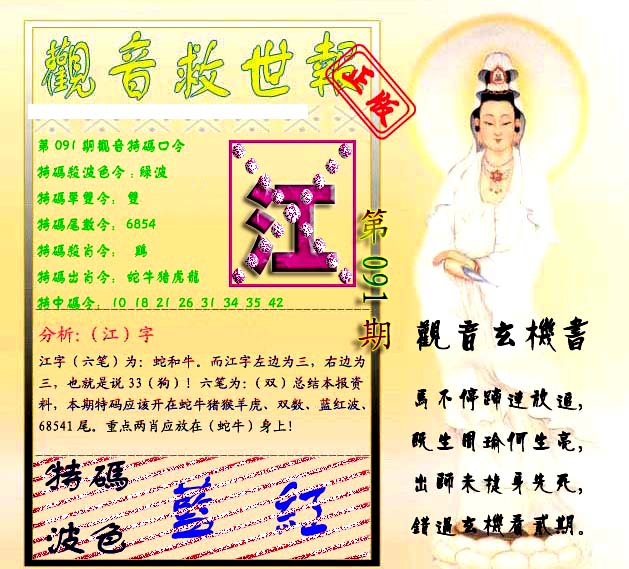 觀音救世報
正版
第091期觀音特碼口令
特碼殺波色令:綠波
特碼單雙令: 雙
特碼尾數令: 6854
特碼殺肖令: 鷄
特碼出肖令: 蛇牛猪虎龍
特中碼令: 10 18 21 26 31 34 35 42
江
第091期
分析:(江)字
江字(六笔)为:蛇和牛。而江字左边为三,右边为
三,也就是说33(狗)!六笔为:(双)总结本报资
料,本期特码应该开在蛇牛猪猴羊虎、双数、蓝红波、
68541尾。重点两肖应放在(蛇牛)身上!
特碼
波色
藍 紅
觀音玄機書
馬不停蹄連放追,
既生周瑜何生亮,
出師未捷身先死,
錯過玄機看貳期。